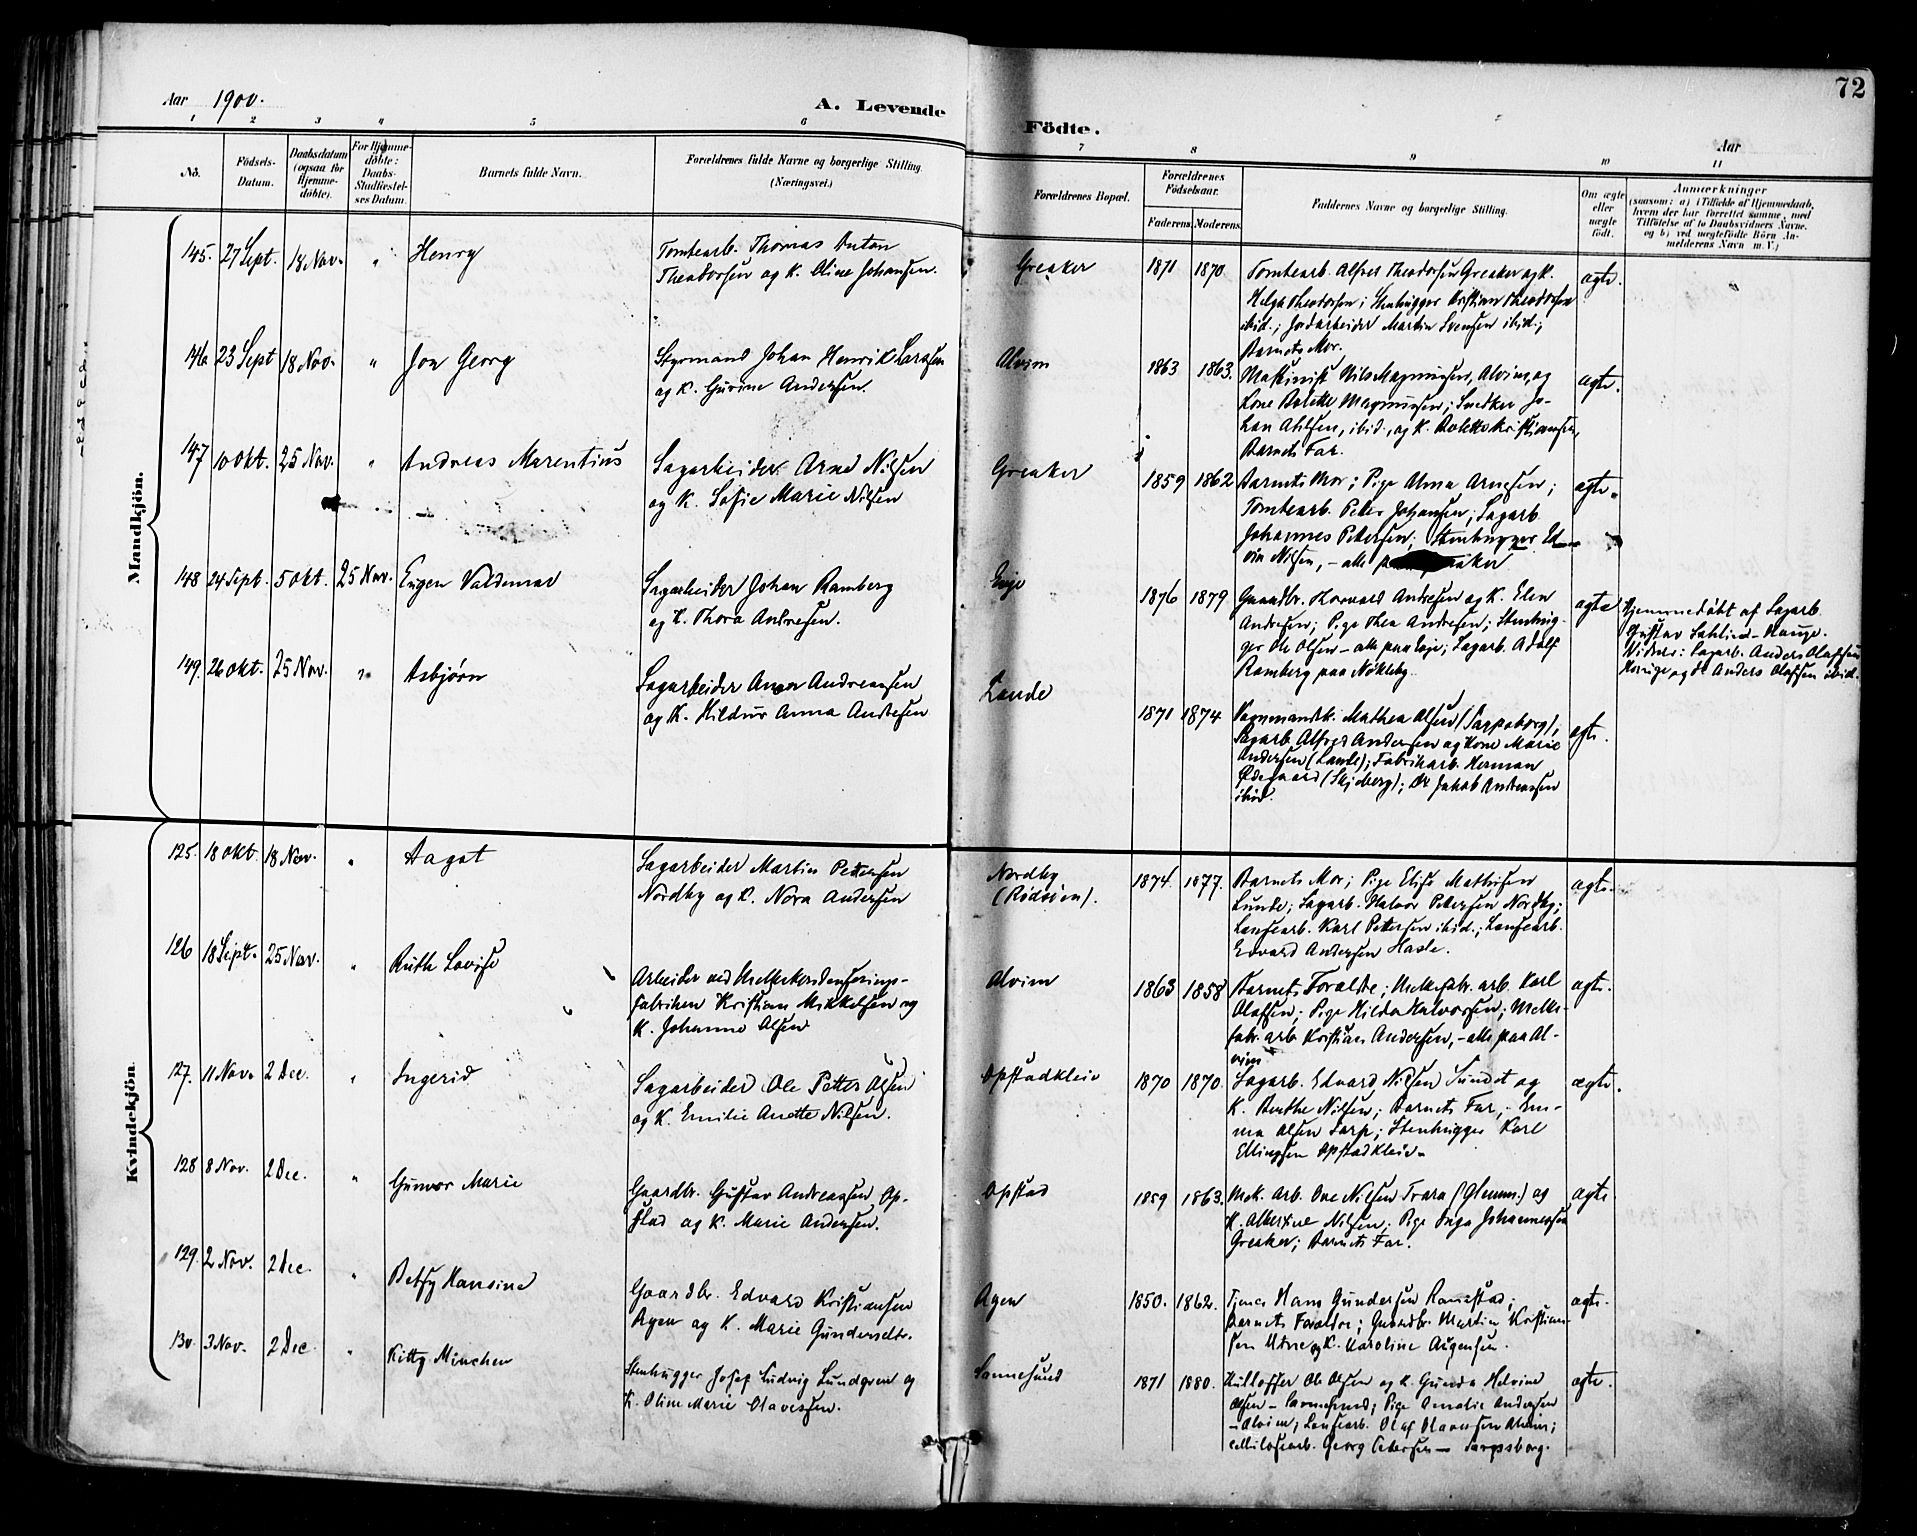 72
Aar 1900.
A. Levende
Födte.
Aar
1 2 3 4 5 6 7 8 9 10 11
No.
Födsels-Datum.
Daabsdatum (ogsaa for Hjemmedöbte).
For Hjemmedöbte: Daabs-Stadfæstelses Datum.
Barnets fulde Navn.
Forældrenes fulde Navne og borgerlige Stilling. (Næringsvei.)
Forældrenes Bopæl.
Forældrenes Födselsaar.
Faderens. Moderens.
Faddernes Navne og borgerlige Stilling.
Om ægte eller uægte födt.
Anmærkninger
(saasom: a) i Tilfælde af Hjemmedaab, hvem der har forrettet samme, med Tilföielse af to Daabsvidners Navne. og b) ved uægtefödte Börn Anmelderens Navn m. V.)
Mandkjön.
145. 27 Sept. 18 Nov. " Henry
Tomtearb. Thomas Anton
Theodorsen og K. Oline Johansen.
Greaker 1871 1870
Tomtearb. Alfred Theodorsen Greaker og K.
Helga Theodorsen; Stenhugger Kristian Theodorsen
ibid.; Jordarbeider Martin Svensen ibid.;
Barnets Mor.
ægte.
146 23 Sept 18 Nov. " Jon Georg
Styrmand Johan Henrik Larssen
og K. Gurine Andersen.
Alvim 1863 1863.
Maskinist Nils Magnussen, Alvim, og
Kone Bolette Magnussen; Snedker Jo-
han Ahlsen, ibid., og K. Bolette Kristiansen,
Barnets Far.
ægte.
147 10 Okt. 25 Nov. " Andreas Marentius
Sagarbeider Arne Nilsen
og K. Sofie Marie Nilsen
Greaker 1859 1862
Barnets Mor; Pige Anna Arnesen;
Tomtearb. Peter Johansen; Sagarb.
Johannes Petersen; Stenhugger Ed-
vin Nilsen, - alle
ægte.
148 24 Sept. 5 Okt. 25 Nov. Eugen Valdemar
Sagarbeider Johan Ramberg
og K. Thora Andresen.
1876 1879
Gaardbr. Havvard Andresen og K. Elen
Andresen; Pige Thea Andresen; Stenhug-
ger Ole Olsen - alle paa; Sagarb. Adolf
Ramberg paa Nøkleby.
ægte
Hjemmedøbt af Sagarb.
Gustav Sahlin - Hauge.
Vidner: Sagarb. Anders Olafsen
Hauge og Anders Olafsen ibid.
149. 26 Okt. 25 Nov. " Asbjørn
Sagarbeider Andreassen
og K. Hildur Anna Andresen
Lande 1871 1874
Mathea Olsen (Sarpsborg);
Sagarb. Alfred Andersen og Kone Marie
Andersen (Lande); Fabrikarb. Herman
Ødegaard (Skjeberg); Jakob Andreassen
ibid.
ægte.
Kvindekjön.
125. 18 Okt. 18 Nov. " Aagot
Sagarbeider Martin Pettersen
Nordby og K. Nora Andersen
Nordby
(Rødsøen). 1874. 1877.
Barnets Mor; Pige Elise Mathisen
Lunde; Sagarb. Halvor Petersen Nordby;
Lensearb. Karl Pettersen ibid.; Lensearb.
Edvard Andersen Hasle.
ægte.
126 18 Sept. 25 Nov. " Ruth Lovise
Arbeider ved Melkekondenserings-
fabriken Kristian Mikkelsen og
K. Johanne Olsen
Alvim 1863 1858
Barnets Forældre; Melkefabr. arb. Karl
Olafsen; Pige Hilda Halvorsen; Melke-
fabr. arb Kristian Andersen, - alle paa Al-
vim.
ægte.
127. 11 Nov. 2 Dec. " Ingerid
Sagarbeider Ole Petter Olsen
og K. Emilie Anette Nilsen.
Opstadkleiv 1870 1870.
Sagarb. Edvard Nilsen Sundet og
K. Berthe Nilsen; Barnets Far, - Em-
ma Olsen Sarp; Stenhugger Karl
Ellingsen Opstadkleiv.
ægte.
128 8 Nov. 2 Dec. " Gunvor Marie
Gaardbr. Gustav Andreassen Op-
stad og K. Marie Andersen.
Opstad 1859 1863.
Mek. Arb. Ove Nilsen Trara (Glemm.) og
K. Albertine Nilsen; Pige Inga Johannessen
Greaker; Barnets Far.
ægte
129. 2 Nov. 2 Dec. " Betsy Hansine
Gaardbr. Edvard Kristiansen
Agen og K. Marie Gundersdtr.
Agen 1850. 1862.
Tjener Hans Gundersen;
Barnets Forældre; Gaardbr. Martin Kristian-
sen Utne og K. Karoline Augensen.
ægte.
130 3 Nov. 2 Dec " Kitty Minchen
Stenhugger Josef Ludvig Lundgren og
K. Oline Marie Olavessen.
Sannesund 1871 1880.
Ole Olsen og K. Gunda Helvine
Olsen - Sannesund; Pige Amalie Andersen
- Alvim; Lensearb. Olaf Olavessen Alvim;
cellulosearb. Georg Petersen - Sarpsborg.
ægte.